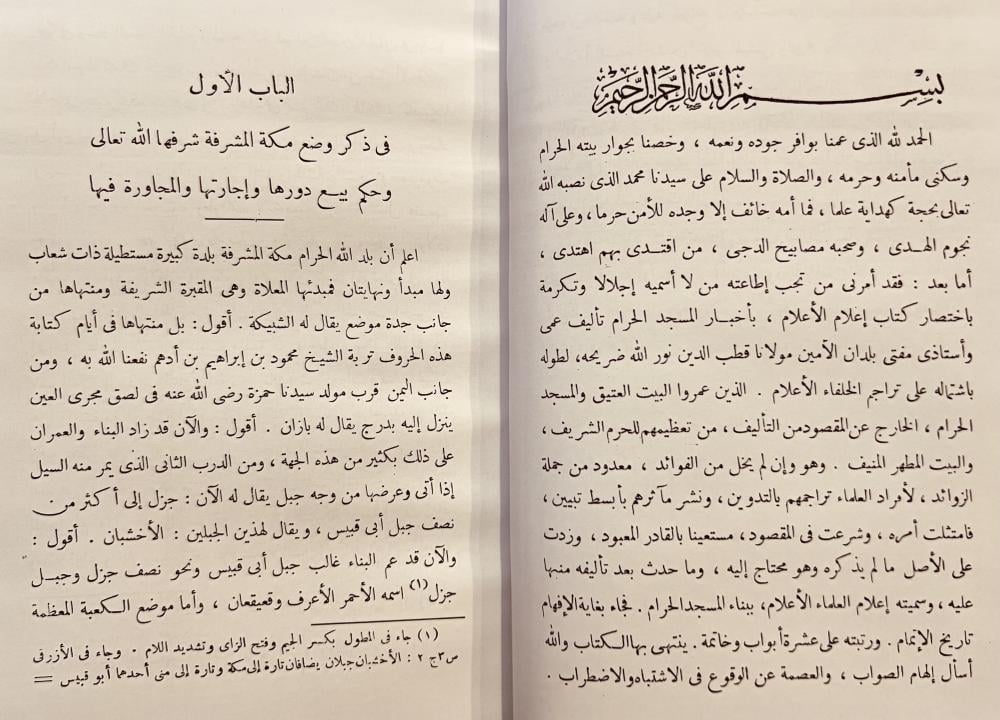 بسم الله الرحمن الرحيم
الحمد لله الذى عمنا بوافر جوده ونعمه ، وخصنا بجوار بيته الحرام
وسكنى مأمنه وحرمه ، والصلاة والسلام على سيدنا محمد الذى نصبه الله
تعالى بحجة كهداية علما ، فما أمه خائف إلا وجده للأمن حرما ، وعلى آله
نجوم الهدى ، وصحبه مصابيح الدجى ، من اقتدى بهم اهتدى ،
أما بعد : فقد أمرنى من تجب إطاعته من لا أسميه إجلالا وتكرمة
باختصار كتاب إعلام الأعلام ، بأخبار المسجد الحرام تأليف عمى
وأستاذى مفتى بلدان الأمين مولانا قطب الدين نور الله ضريحه، لطوله
باشتماله على تراجم الخلفاء الأعلام . الذين عمروا البيت العتيق والمسجد
الحرام ، الخارج عن المقصود من التأليف ، من تعظيمهم للحرم الشريف ،
والبيت المطهر المنيف . وهو وإن لم يخل من الفوائد ، معدود من جملة
الزوائد ، لأفراد العلماء تراجمهم بالتدوين ، ونشر مآثرهم بأبسط تبيين ،
فامتثلت أمره ، وشرعت فى المقصود ، مستعينا بالقادر المعبود ، وزدت
على الأصل ما لم يذكره وهو محتاج إليه ، وما حدث بعد تأليفه منبها
عليه ، وسميته إعلام العلماء الأعلام، ببناء المسجد الحرام . فجاء بغاية الإفهام
تاريخ الإتمام . ورتبته على عشرة أبواب وخاتمة . ينتهى بها الكتاب والله
أسأل إلهام الصواب ، والعصمة عن الوقوع فى الاشتباه والاضطراب .
الباب الأول
فى ذكر وضع مكة المشرفة شرفها الله تعالى
وحكم بيع دورها وإجارتها والمجاورة فيها
اعلم أن بلد الله الحرام مكة المشرفة بلدة كبيرة مستطيلة ذات شعاب
ولها مبدأ ونهايتان فمبدئها المعلاة وهى المقبرة الشريفة ومنتهاها من
جانب جدة موضع يقال له الشبيكة . أقول : بل منتهاها فى أيام كتابة
هذه الحروف تربة الشيخ محمود بن إبراهيم بن أدهم نفعنا الله به ، ومن
جانب اليمن قرب مولد سيدنا حمزة رضى الله عنه فى لصق مجرى العين
ينزل إليه بدرج يقال له بازان . أقول : والآن قد زاد البناء والعمران
على ذلك بكثير من هذه الجهة ، ومن الدرب الثانى الذى يمر منه السيل
إذا أتى وعرضها من وجه جبل يقال له الآن : جزل إلى أكثر من
نصف جبل أبى قبيس ، ويقال لهذين الجبلين : الأخشبان . أقول :
والآن قد عم البناء غالب جبل أبى قبيس ونحو نصف جزل وجبل
جزل(١) اسمه الأحمر الأعرف وقعيقعان ، وأما موضع الكعبة المعظمة
(١) جاء فى المطول بكسر الجيم وفتح الزاى وتشديد اللام . وجاء فى الأزرقى
ص٣ج ٢ : الأخشبان جبلان يضافان تارة إلى مكة وتارة إلى منى أحدهما أبو قبيس =